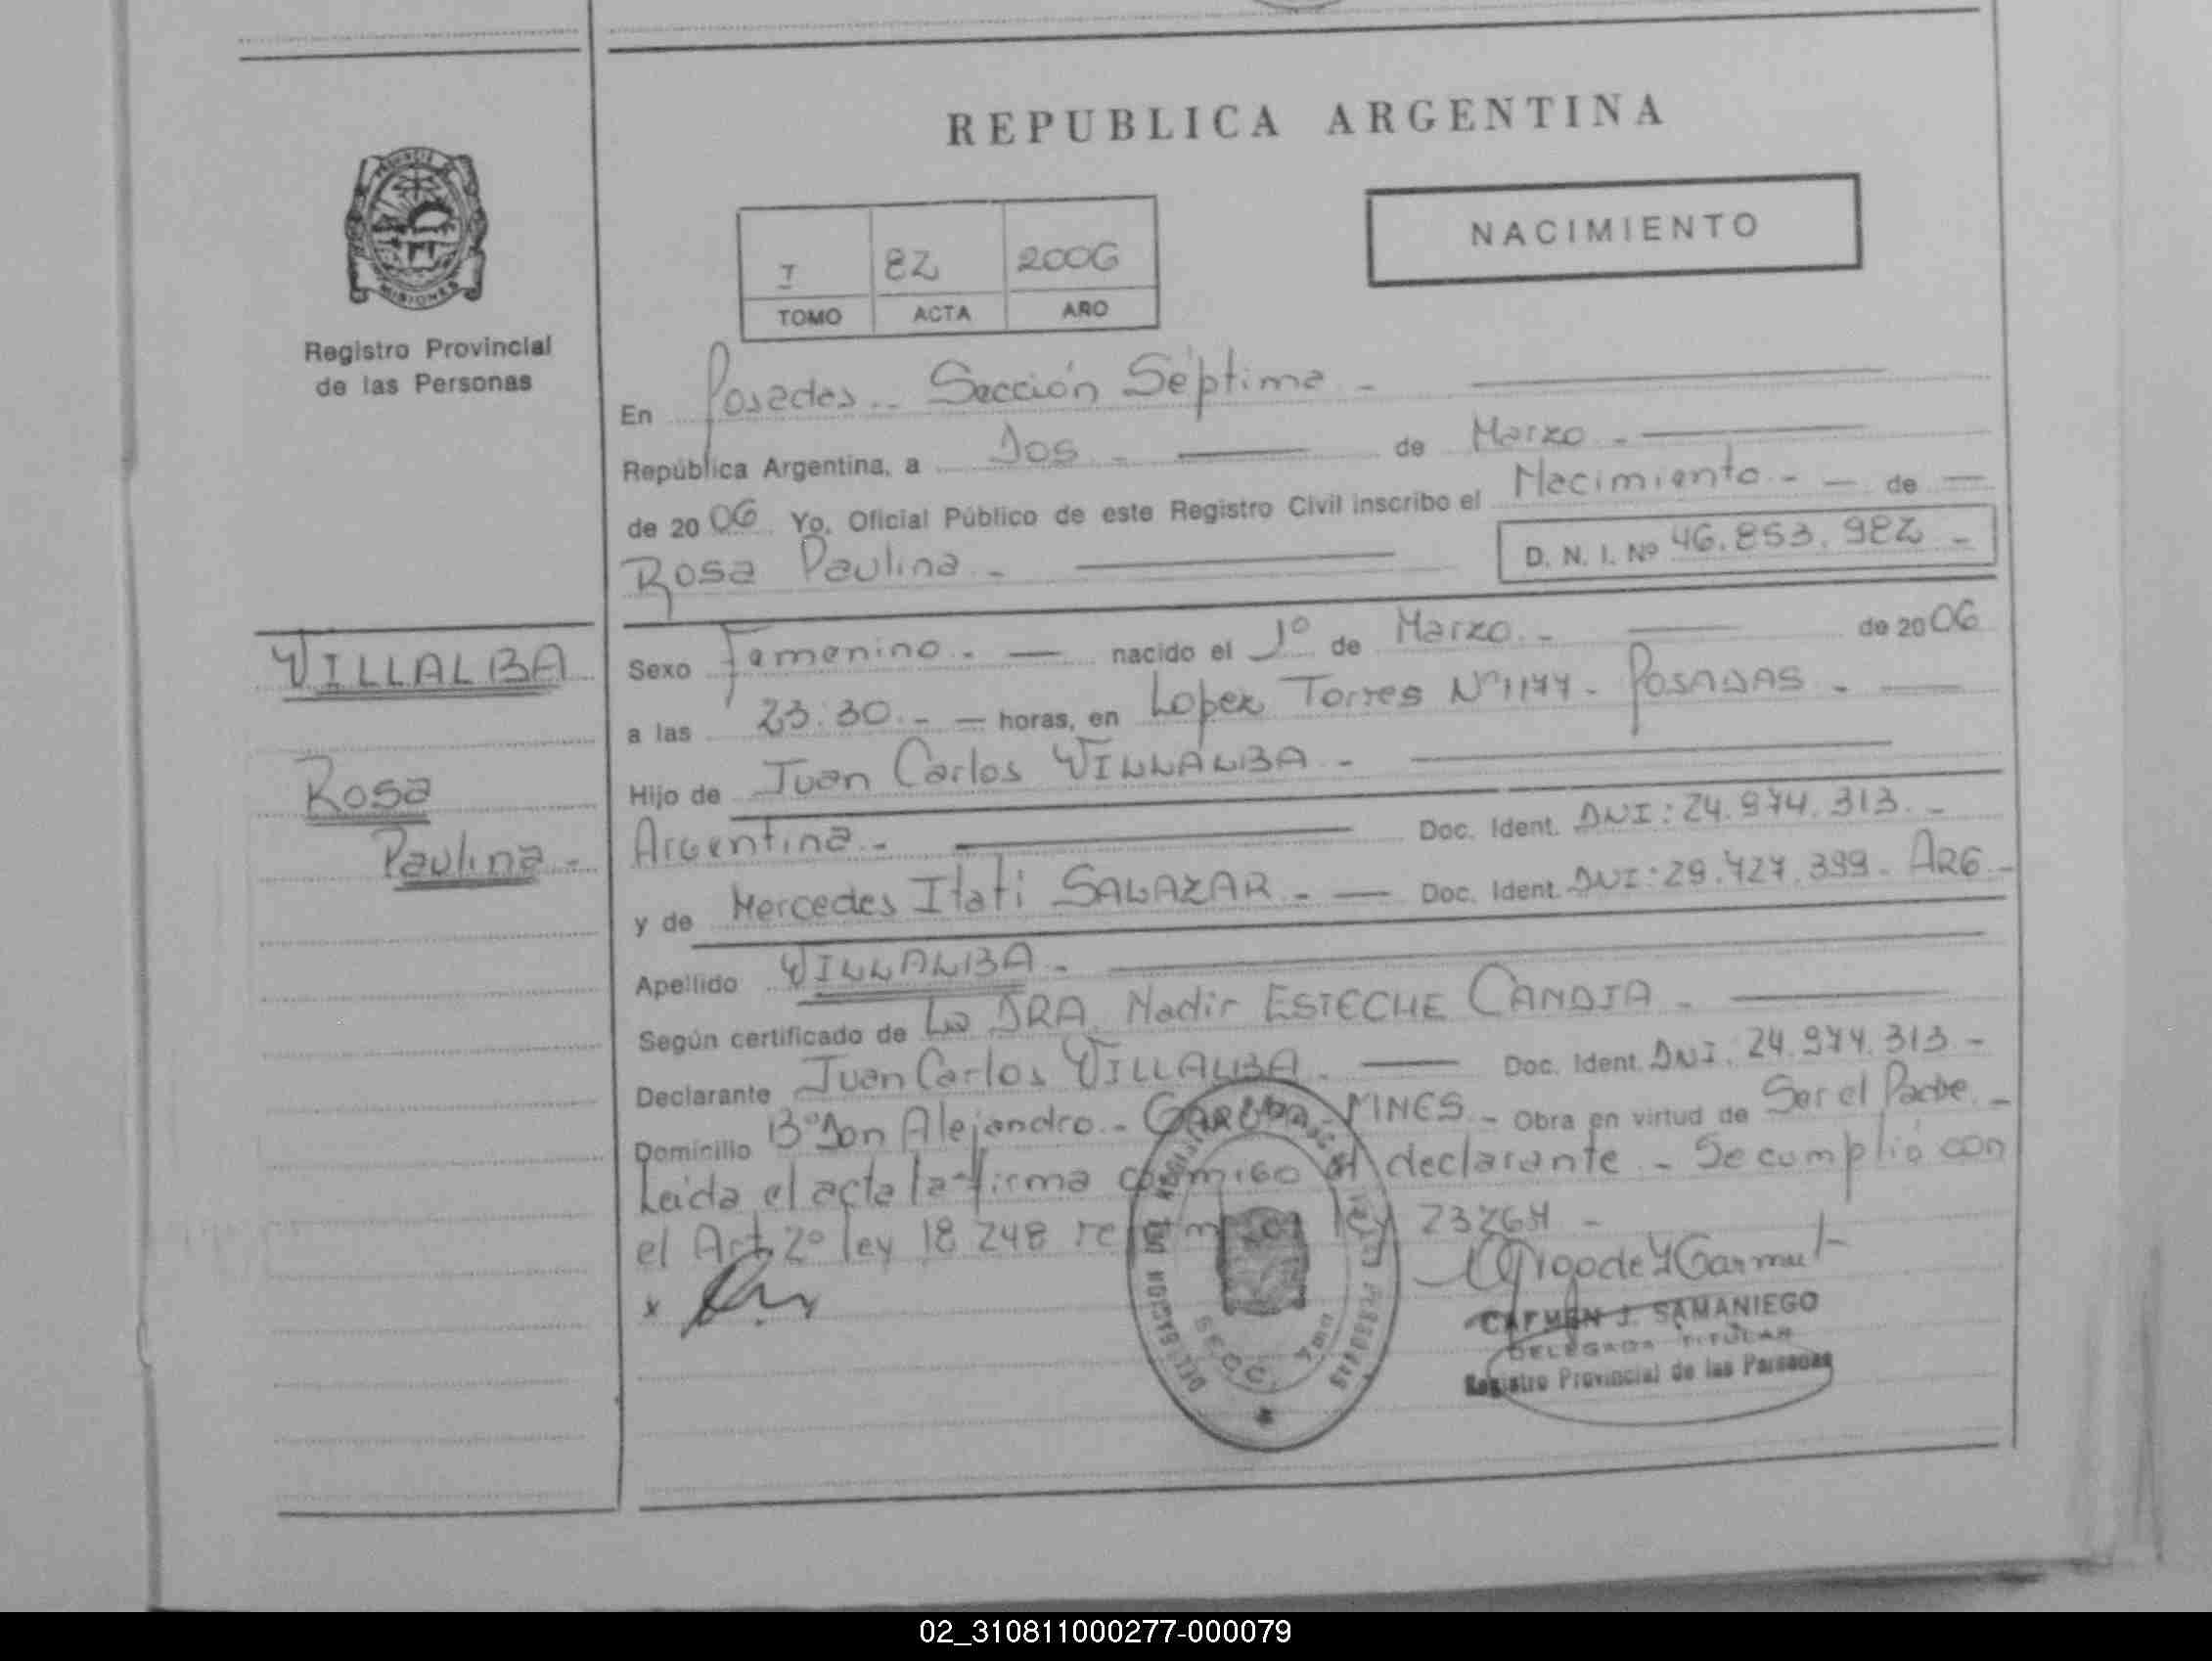 REPUBLICA ARGENTINA
NACIMIENTO
I 82 2006
TOMO ACTA AÑO
PROVINCIA DE MISIONES
Registro Provincial
de las Personas
VILLALBA
Rosa
Paulina -
En Posadas - Sección Séptima -
República Argentina, a Dos - de Marzo -
de 2006 Yo, Oficial Público de este Registro Civil inscribo el Nacimiento - - de
Rosa Paulina - D. N. I. Nº 46.853.982 -
Sexo Femenino - nacido el 1º de Marzo - de 2006
a las 23:30 - - horas, en Lopez Torres Nº1177 - POSADAS -
Hijo de Juan Carlos VILLALBA -
Argentina - Doc. Ident. DNI: 24.974.313 -
y de Mercedes Itati SALAZAR - Doc. Ident. DNI: 29.427.399 - ARG -
Apellido VILLALBA -
Según certificado de La DRA Nadir ESTECHE CANDIA -
Declarante Juan Carlos VILLALBA - Doc. Ident. DNI. 24.974.313 -
Domicilio Bº Don Alejandro - GARUPA - MNES - Obra en virtud de Ser el Padre -
Leida el acta la firma conmigo el declarante - Se cumplió con
el Art. 2º ley 18 248 ley 23264 -
x
CARMEN J. SAMANIEGO
DELEGADA TITULAR
Registro Provincial de las Personas
DELEGACION SECC. 7ma PERSONAS
02_310811000277-000079